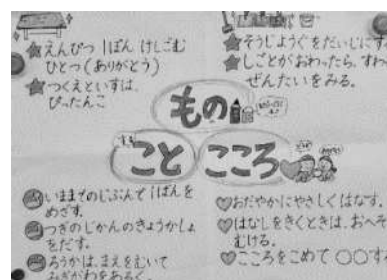 えんぴつ 1ぽん けしごむ
ひとつ(ありがとう)
つくえといすは、
ぴったんこ
そうじようぐをだいじにす
しごとがおわったら、すわ
ぜんたいをみる。
もの
こと
こころ
いままでのじぶんで1ばんを
めざす。
つぎのじかんのきょうかしょ
をだす。
ろうかは、まえをむいて
みぎがわをあるく。
おだやかにやさしくはなす。
はなしをきくときは、おへそ
むける。
こころをこめて 〇〇す